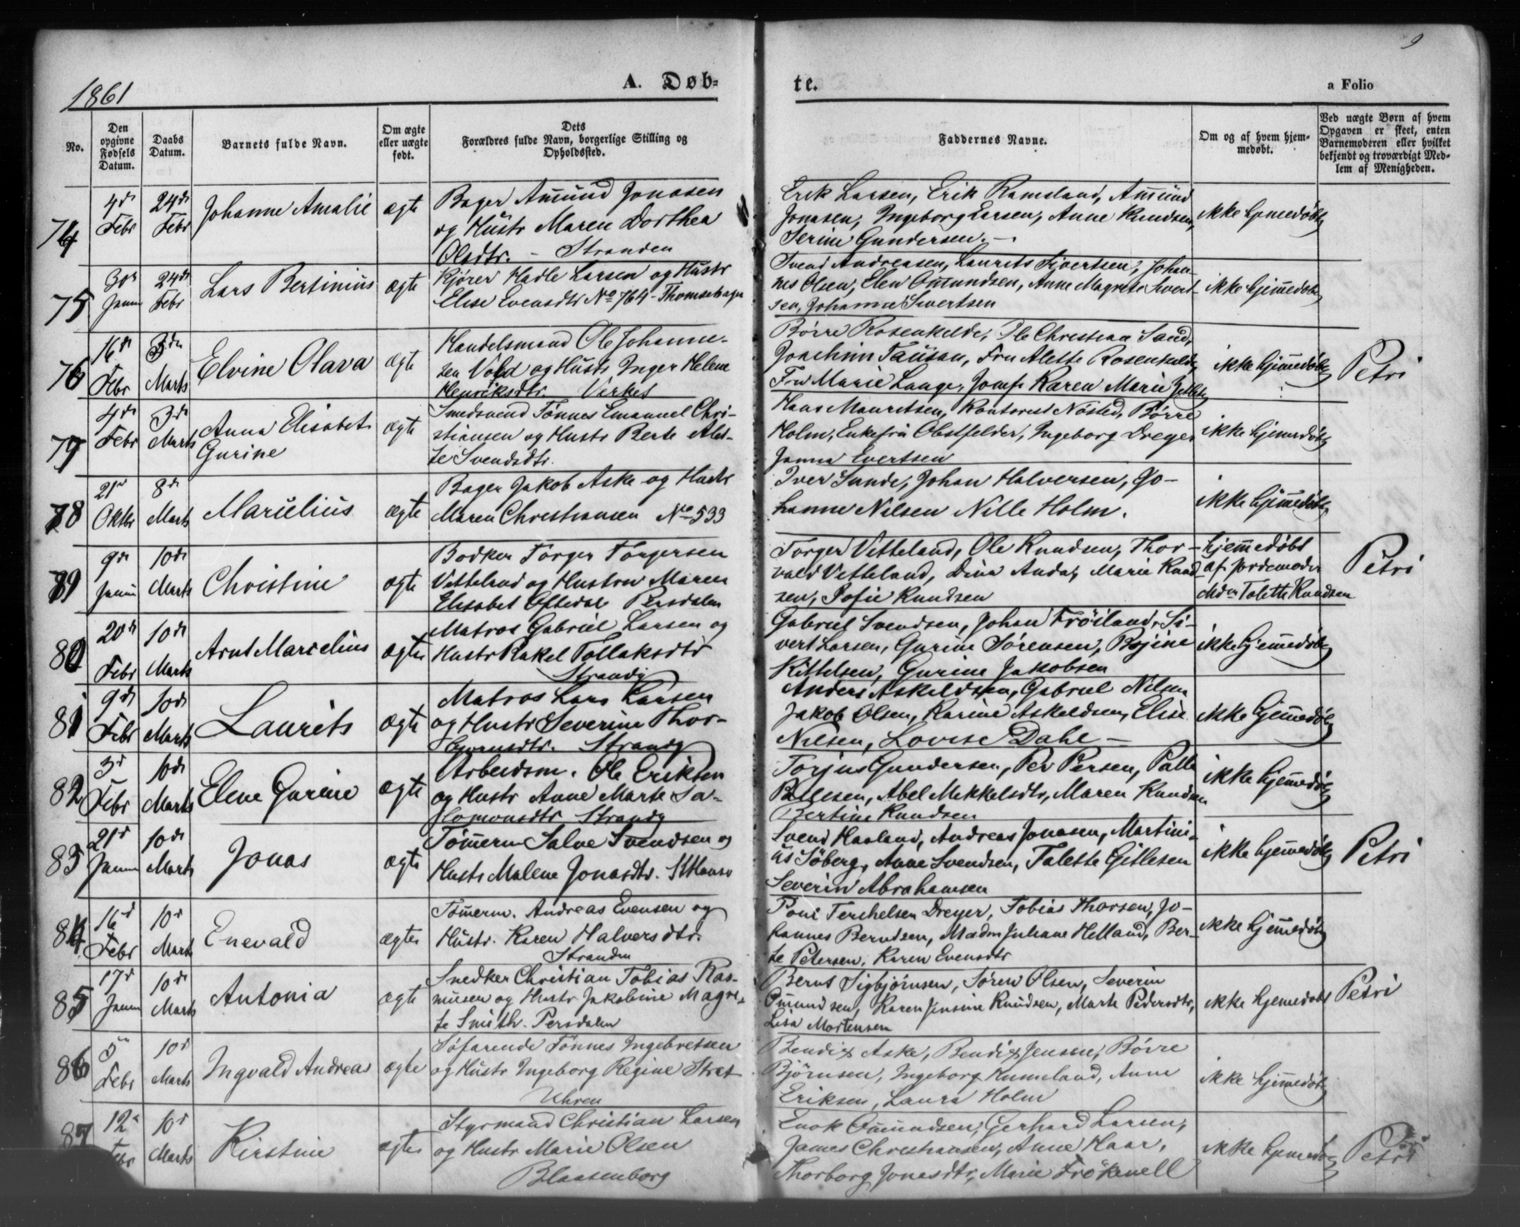 1861
A. Døb-
te.
a Folio
9
No.
Den opgivne Fødsels Datum.
Daabs Datum.
Barnets fulde Navn.
Om ægte eller uægte født.
Dets Forældres fulde Navn, borgerlige Stilling og Opholdssted.
Faddernes Navne.
Om og af hvem hjemmedøbt.
Ved uægte Børn af hvem Opgaven er skeet, enten Barnemoderen eller hvilket bekjendt og troværdigt Medlem af Menigheden.
74 4de Febr 24de Febr Johanne Amalie ægte
Bager Amund Jonasen
og Hustr Maren Dorthea
Olsdtr. - Stranden
Erik Larsen, Erik Ramsland, Amund
Jonasen, Ingeborg Larsen, Anne Knudsen,
Serine Gundersen. -
ikke hjemmedøbt
75 30de Janu 24de Febr Lars Bertinius ægte
Kjører Hadle Larsen og Hustr
Elise Evensdtr No 764
Svend Andreasen, Laurits Sivertsen, Johan-
nes Olsen, Elen Omundsen, Anne Magrete Sivert-
sen, Johanne Sivertsen
ikke hjemmedøbt
76 16de Febr 3de Marts Elvine Olava ægte
Handelsmand Ole Johanne-
sen Vold og Hustr Inger Helene
Henriksdtr. Virket
Børre Rosenkilde, Ole Christian Sand,
Joachim, Fru Alette Rosenkilde,
Fru Marie Lange, Jomfr Karen Marie
ikke hjemmedøbt Petri
77 4de Febr 3de Marts Anna Elisabet
Gurine ægte
Smedsvend Tønnes Emanuel Chri-
stiansen og Hustr Berte Alet-
te Svendsdtr.
Hans Mauritsen, Børre
Holm, Enkefru Obstfelder, Ingeborg Dreyer
Janna Evertsen
ikke hjemmedøbt
78 21de Oktbr 8de Marts Marselius ægte
Bager Jakob Aske og Hustr
Maren Christiansen No 533
Iver Sunde, Johan Halversen, Jo-
hanne Nilsen Nille Holm.
ikke hjemmedøbt
79 9de Janu 10de Marts Christine ægte
Bødker Torger Torgersen
Vetteland og Hustru Maren
Elisabet Oftedal Persdalen
Torger Vetteland, Ole Knudsen, Thor-
vald Vetteland, Dina Anda, Marie Knud
sen, Sofie Knudsen
hjemmedøbt
af Jordemoder
Talette Knudsen
Petri
80 20de Febr 10de Marts Arnt Marselius ægte
Matros Gabriel Larsen og
Hustr Rakel Tollaksdtr
Strandg
Gabriel Svendsen, Johan Frøiland, Si-
vert Larsen, Gurine Sørensen,
Kittelsen, Gurine Jakobsen
ikke hjemmedøbt
81 9de Febr 10de Marts Laurits ægte
Matros Lars Larsen
og Hustr Severine Thor-
bjørnsdtr. Strandg
Anders Askeldsen, Gabriel Nilsen
Jakob Olsen, Karine Askeldsen, Elise
Nilsen, Lovise Dahl -
ikke hjemmedøbt
82 3de Febr 10de Marts Elene Gurine ægte
Arbeidsm. Ole Eriksen
og Hustr Anne Marte Sa-
lomonsdtr Strandg
Torjus Gundersen, Per Persen, Palle
Abel Mikkelsdtr, Maren Knudsen
Bertine Knudsen
ikke hjemmedøbt
83 21de Janu 10de Marts Jonas ægte
Tømmerm Salve Svendsen og
Hustr Malene Jonasdtr. St Hansv
Svend Haaland, Andreas Jonasen, Martini-
us Søberg, Anne Svendsen, Talette Gitlesen
Severin Abrahamsen
ikke hjemmedøbt Petri
84 16de Febr 10de Marts Enevald ægte
Tømmerm. Andreas Evensen og
Hustr. Karen Halversdtr.
Stranden
Poul Terchelsen Dreyer, Tobias Thorsen, Jo-
hannes Berndsen, Madm Juliane Helland, Ber-
te Petersen, Karen Evensdtr
ikke hjemmedøbt
85 17de Janu 10de Marts Antonia ægte
Snedker Christian Tobias Ras-
musen og Hustr Jakobine Magre-
te Smith. Persdalen
Bernt Sigbjørnsen, Søren Olsen, Severin
Omundsen, Karen Jensine Knudsen, Marte Pedersdtr,
Lisa Mortensen
ikke hjemmedøbt Petri
86 5te Febr 10de Marts Ingvald Andreas ægte
Søfarende Tønnes Ingebretsen
og Hustr Ingeborg Regine Strat-
Uhren
Bendix Aske, Bendix Jensen, Børre
Bjørnsen, Ingeborg Kumeland, Anne
Eriksen, Laura Holm
ikke hjemmedøbt
87 12te Febr 10de Marts Kirstine ægte
Styrmand Christian Larsen
og Hustr Marie Olsen
Blaasenborg
Enok Omundsen, Gerhard Larsen,
James Christiansen, Anne Haar,
Thorborg Jonasdtr, Marie
ikke hjemmedøbt Petri